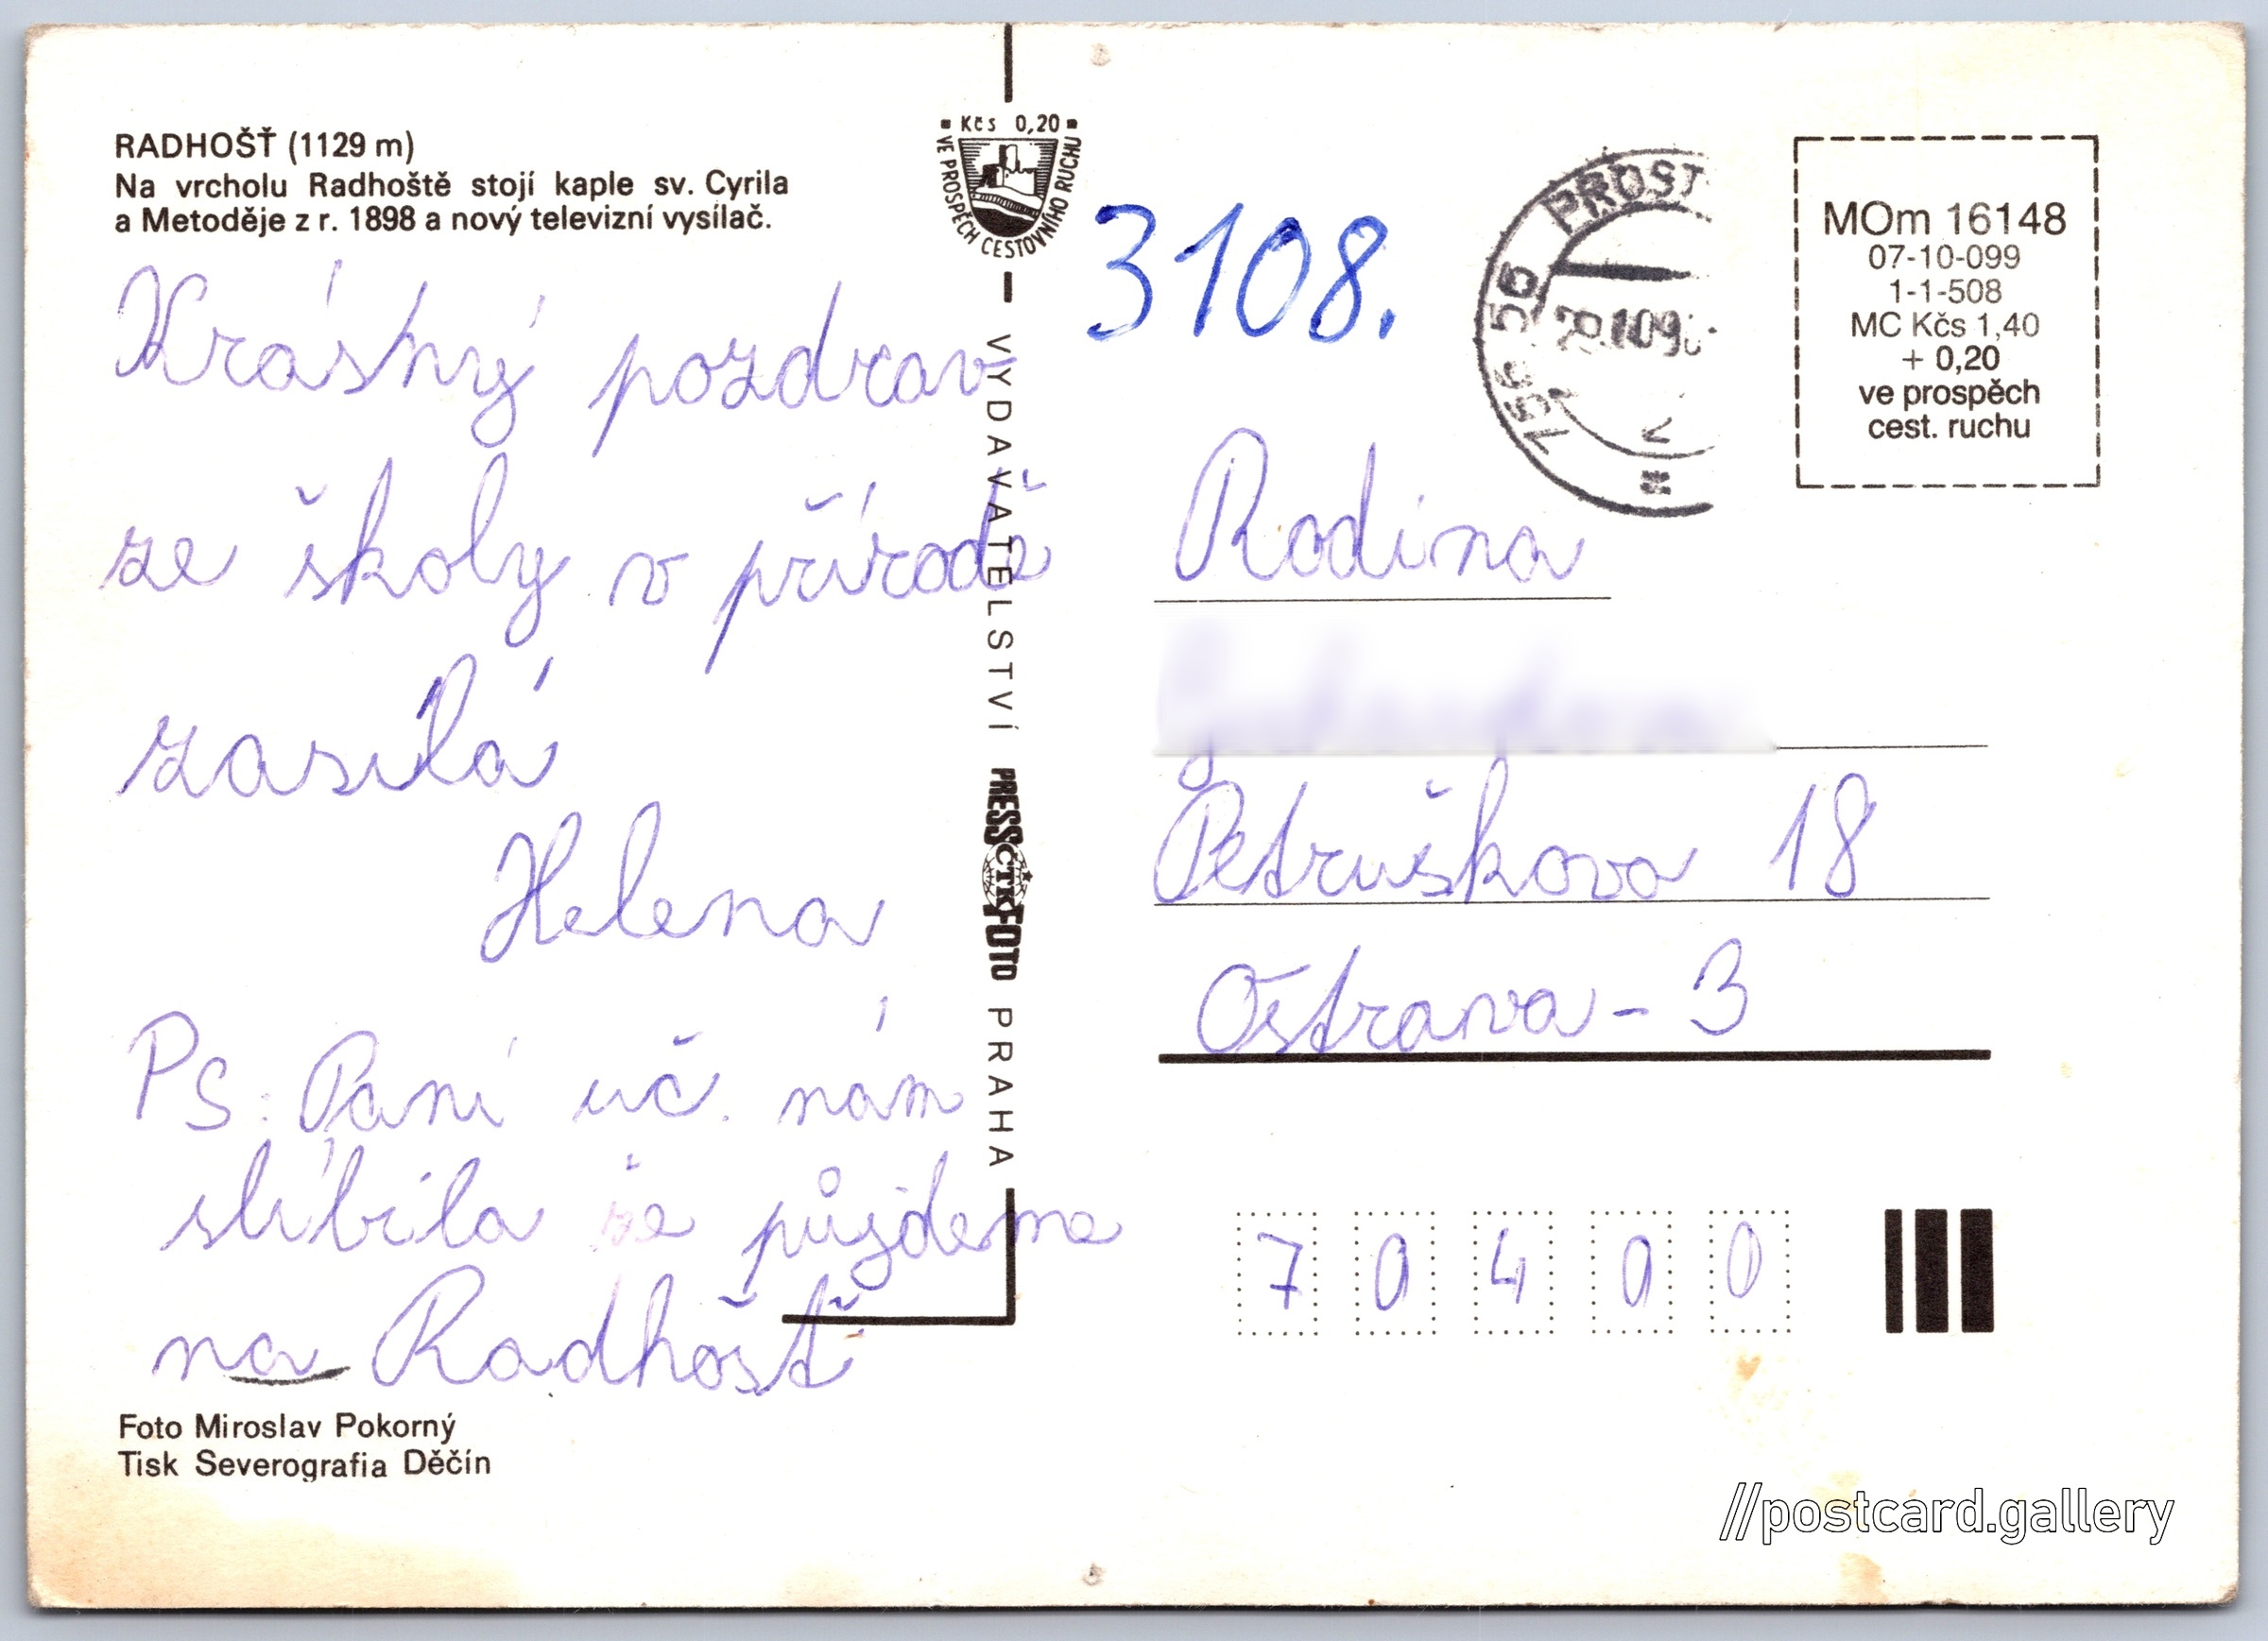 RADHOŠŤ (1129 m)
Na vrcholu Radhoště stojí kaple sv. Cyrila
a Metoděje z r. 1898 a nový televizní vysílač.
Krásný pozdrav
ze školy v přírodě
zasílá
Helena
PS: Paní uč. nám
slíbila že půjdeme
na Radhošť
Foto Miroslav Pokorný
Tisk Severografia Děčín
Kčs 0,20
VE PROSPĚCH CESTOVNÍHO RUCHU
VYDAVATELSTVÍ PRESSFOTO PRAHA
ČTK
3108.
756 56 PROST
MOm 16148
07-10-099
1-1-508
MC Kčs 1,40
+ 0,20
ve prospěch
cest. ruchu
Rodina
Petruškova 18
Ostrava - 3
70400
//postcard.gallery